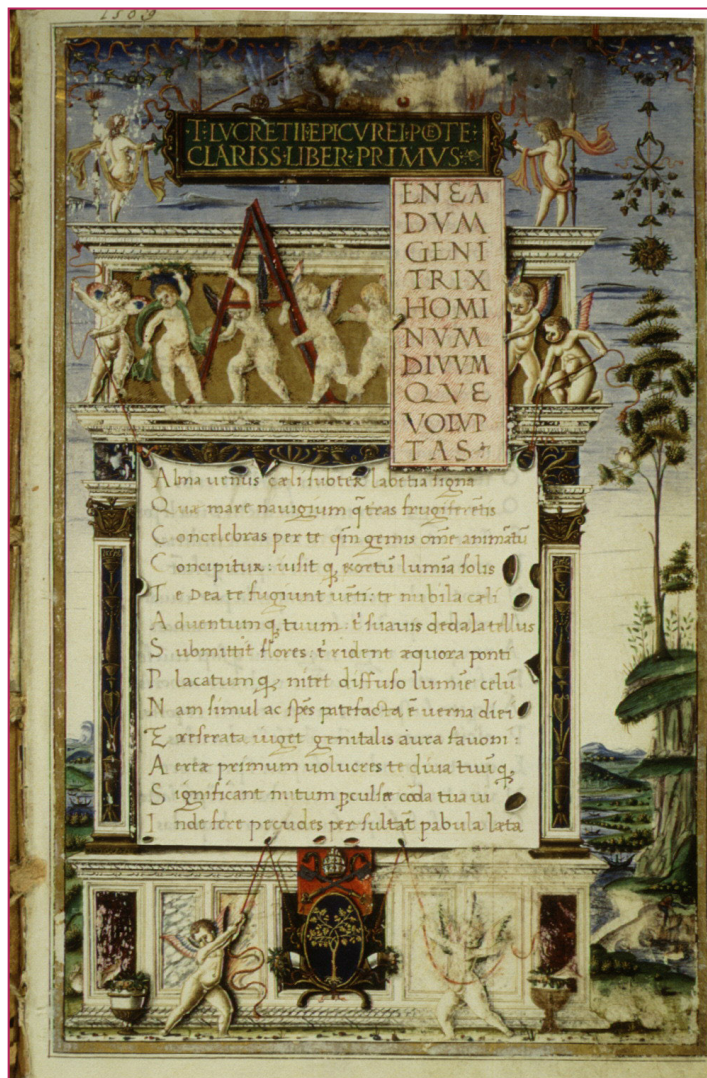 1569
·T·LVCRETII·EPICVREI·POETE·
CLARISS·LIBER·PRIMVS·
A
ENEA
DVM
GENI
TRIX
HOMI
NVM
DIVVM
QVE
VOLVP
TAS
Alma venus cæli subter labẽtia signa
Quæ mare navigium q̃ tras frugiferẽtis
Concelebras per te qm̃ genus om̃e animãtũ
Concipitur: uisit q̨ exortũ lumĩa solis
Te Dea te fugiunt uẽti: te nubila cæli
Aduentum q̨ tuum: t̃ suauis dedala tellus
Submittit flores: t̃ rident æquora ponti
Placatum q̨ nitet diffuso lumĩe celũ
Nam simul ac spẽs patefacta ẽ uerna diei
Exreserata uiget genitalis aura favoni:
Aereæ primum volucres te diua tuũ q̨
Significant nutum ꝑculsæ corda tua ui
Inde fere pecudes per sultãt pabula læta